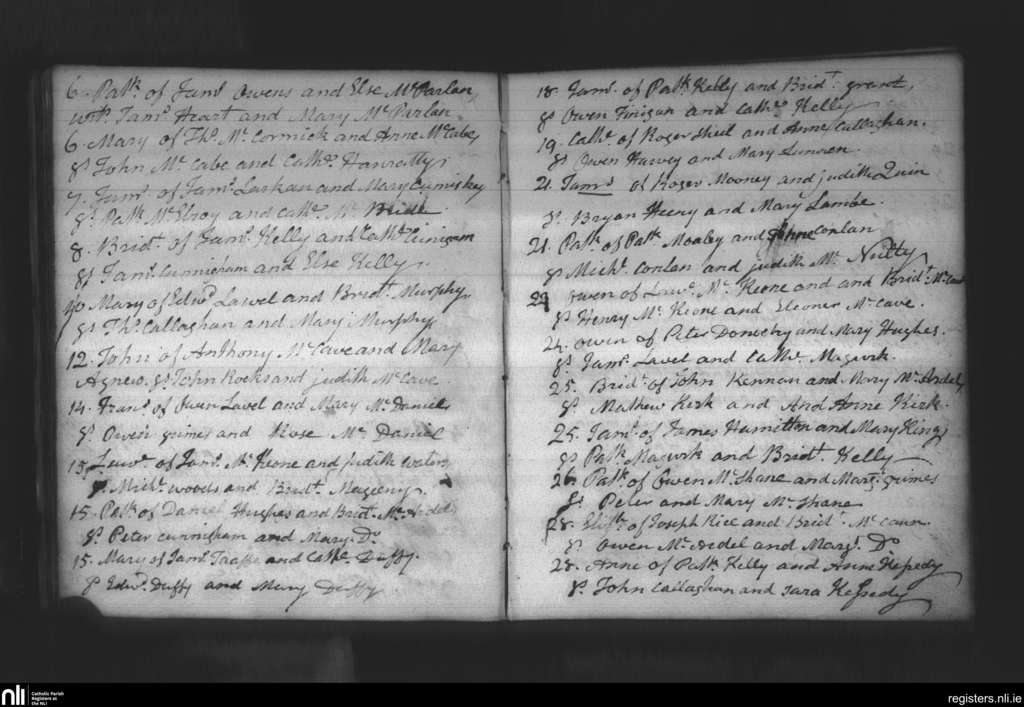 6. Patk. of Jams. Owens and Else McParlan,
wth. Jams. Heart and Mary McParlan
6. Mary of Ths. McCormick and Anne McCabe,
gs. John McCabe and Cathe. Hanratty,
7. Jams. of Jams. Larkan and Mary Cumiskey
gs. Patk. McElroy and Cathe. Mc Bride
8. Bridt. of Jams. Kelly and Cathe. Cunigam
gs. Jams. Cunnigham and Else Kelly.
10 Mary of Edwd. Lavel and Bridt. Murphy
gs. Ths. Callaghan and Mary Murphy
12. John of Anthony McCave and Mary
Agnew. gs. John Rocks and judith McCave
14. Frans. of Owen Lavel and Mary McDaniel
gs. Owen grimes and Rose McDaniel
15 Lawe. of Jams. McKeone and judith Waters
gs. Michl. woods and Bridt. Mageeny.
15. Patk. of Daniel Hughes and Bridt. McArdel
gs. Peter cunnigham and Mary Do.
15. Mary of Jams. Taaffe and Cathe. Duffy.
gs Edwd. Duffy and Mary Duffy
18. Jams. of Patk. Kelly and Bridt. grant,
gs Owen Finigan and Cathe. Kelly
19. Cathe. of Roger Sheil and Anne Callaghan.
gs Owen Harvey and Mary
21. Jams. of Roger Mooney and judith Quin
gs. Bryan Heery and Mary Lambe.
21. Patk. of Patk. Moaley and Conlan
gs Michl. Conlan and judith McNulty
22 Owen of Lawe. McKeone and and Bridt.
gs Henry McKeone and Eleoner McCave.
24. Owen of Peter and Mary Hughes.
gs. Jams. Lavel and Cathe. Magurk.
25. Bridt. of John Kennan and Mary McArdel,
gs. Mathew Kirk and And Anne Kirk.
25. Jams. of James Hamilton and Mary King,
gs Patk. Magurk and Bridt. Kelly
26. Patk. of Owen McShane and Margt. grimes
gs. Peter and Mary McShane
28. Elisth. of Joseph Rice and Bridt. McCann
gs. Owen McArdel and Margt. Do
28. Anne of Patk. Kelly and Anne Kessedy
gs. John Callaghan and Sara Kessedy
nli
Catholic Parish
Registers at
the NLI
registers.nli.ie